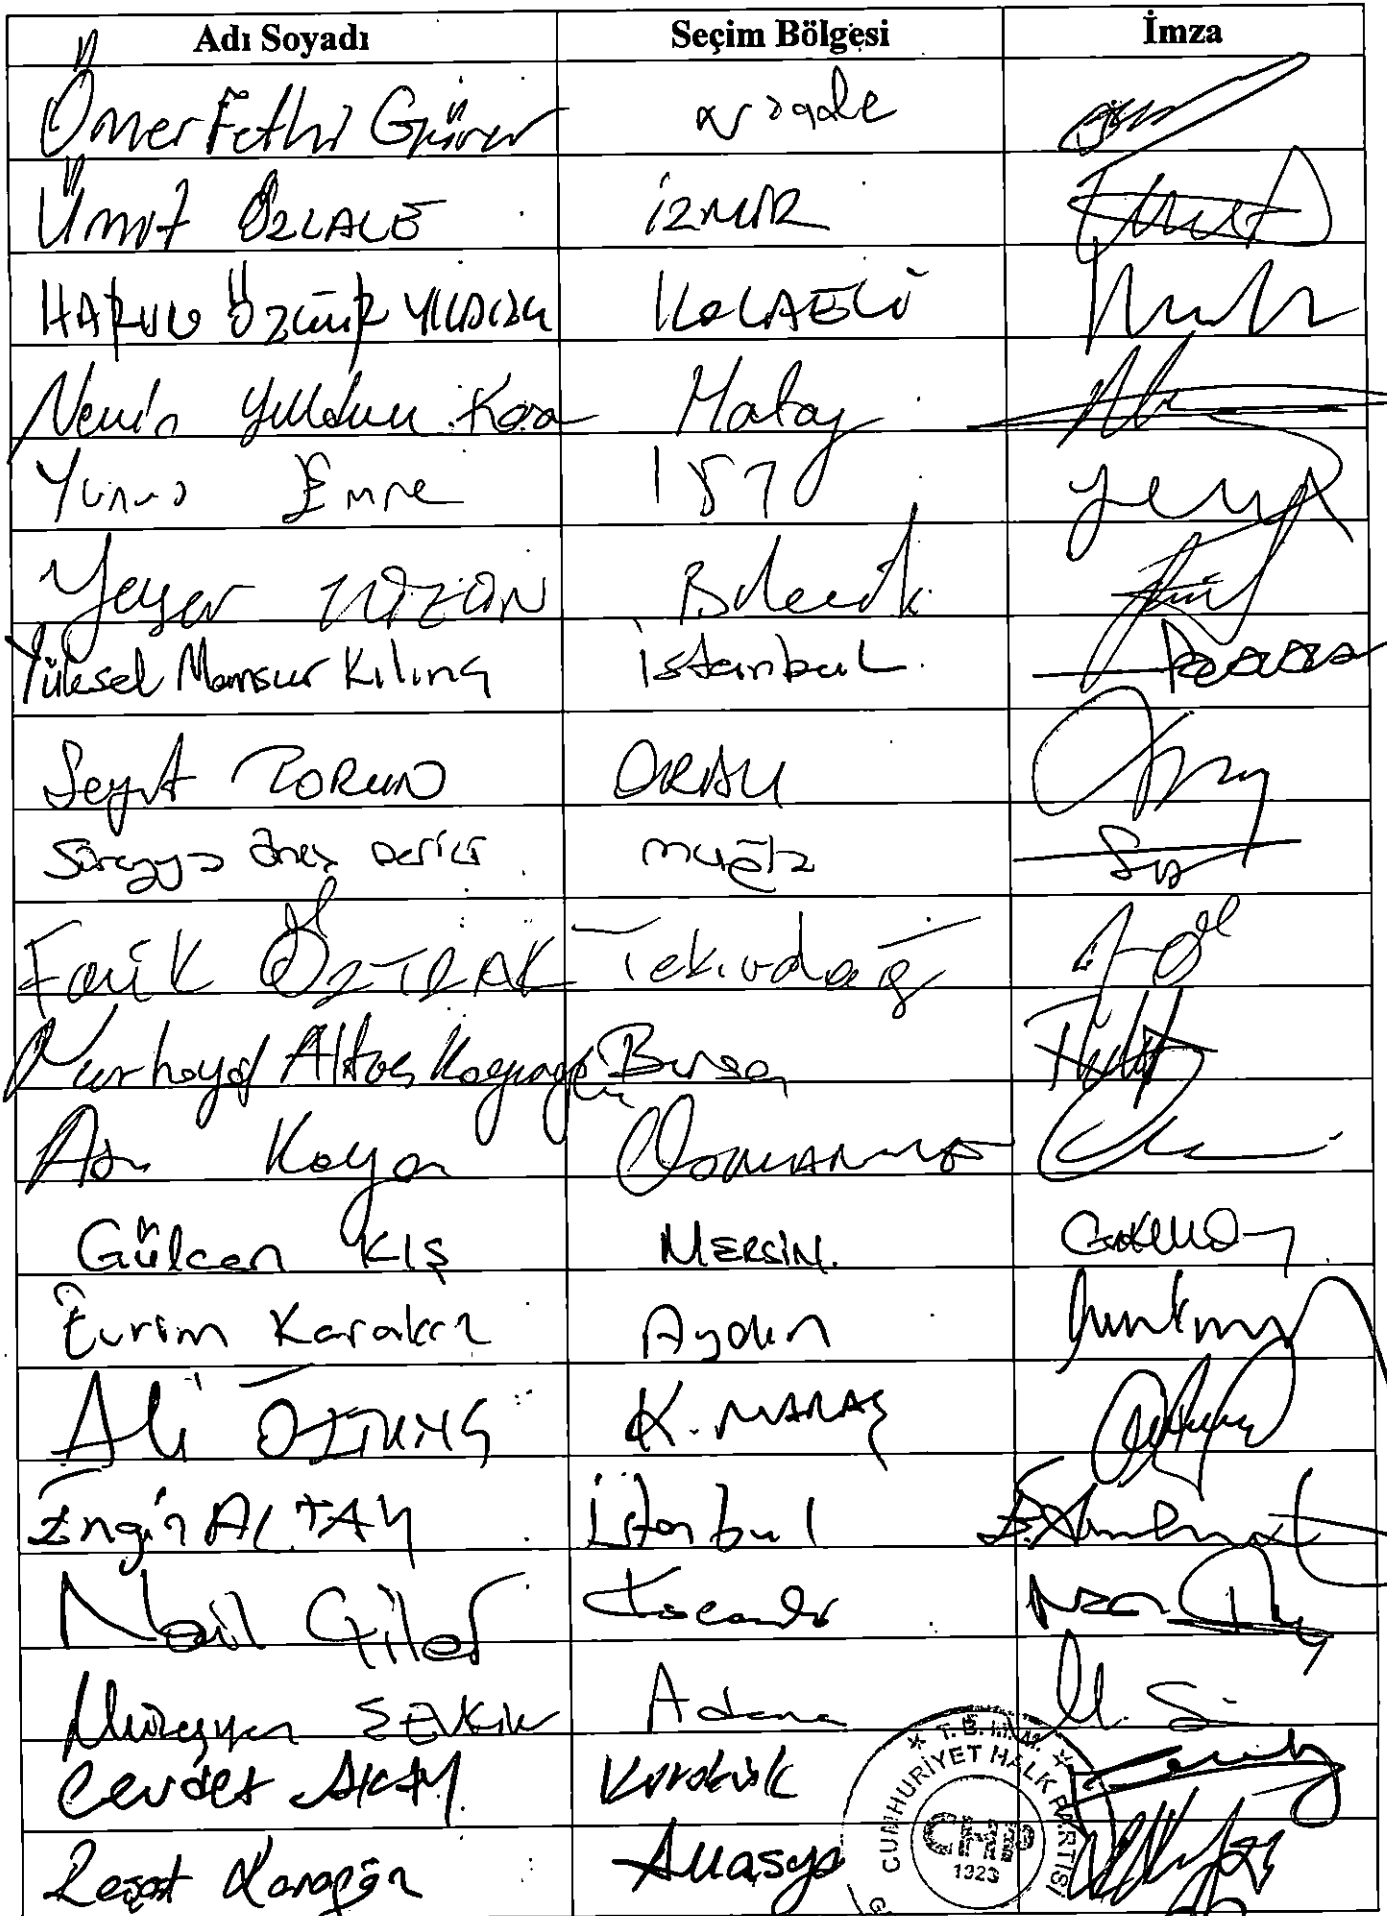 Adı Soyadı Seçim Bölgesi İmza
Ömer Fethi Gürer
Ümit ÖZLALE İZMİR
HARUN ÖZGÜR YILDIZLI KOCAELİ
Nermin Yıldırım Kara Hatay
Yunus Emre
Yaşar TÜZÜN Bilecik
Yüksel Mansur Kılınç İstanbul
Seyit TORUN ORDU
Süreyya Öneş Derici muğla
Faik ÖZTRAK Tekirdağ
Nurhayat Altaca Kayışoğlu Bursa
Asu Kaya OSMANİYE
Gülcan KIŞ MERSİN.
Evrim Karakoz Aydın
Ali ÖZTUNÇ K. MARAŞ
Engin ALTAY İstanbul
Nail Çiler Kocaeli
Müzeyyen ŞEVKİN Adana
Cevdet AKAY Karabük
Reşat Karagöz Amasya
T.B.M.M.
CUMHURİYET HALK PARTİSİ
CHP
1923